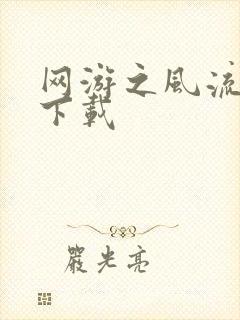 网游之风流
下载
严光亮